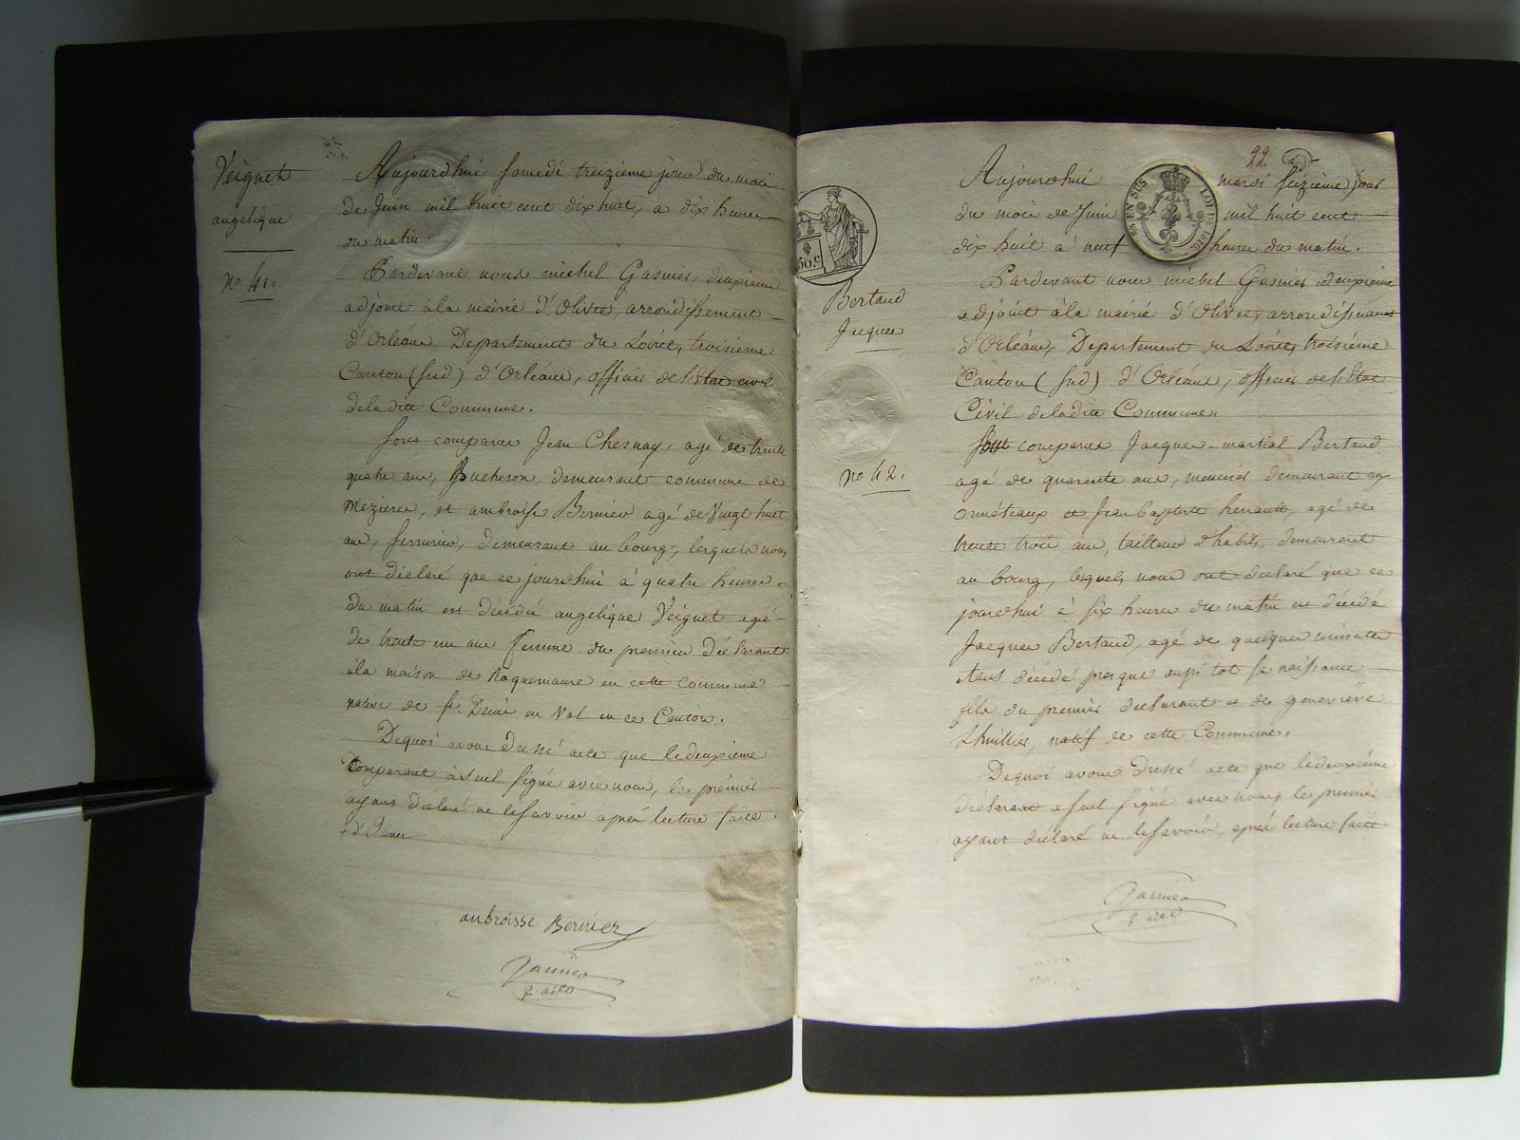 Veignet
angelique
n.° 41.
Aujourd'hui Samedi treizieme jour du mois
de Juin mil huit cent dix huit, a dix heures
du matin
Pardevant nous michel Gasnier, deuxieme
adjoint à la mairie d'Olivet, arrondissement
d'Orléans Departement du Loiret, troisieme
Canton (sud) d'Orléans, officier de l'Etat civil
de la dite Commune.
sont comparus Jean Chesnay, agé de trente
quatre ans, Bucheron demeurant commune de
Mezieres, et ambroise Bernier agé de Vingt huit
ans, serrurier, demeurant au bourg, lesquels nous
ont déclaré que ce jourd'hui à quatre heures
du matin est décédée angelique Veignet agée
de trente un ans femme du premier Déclarant
à la maison de Roquemaure en cette commune
native de St. Denis en Val en ce Canton.
Dequoi avons Dressé acte que le deuxieme
Comparant a seul signé avec nous, le premier
ayant déclaré ne le savoir aprés lecture faite.
ambroisse Bernier
Gasnier
2. adj.
22
Aujourd'hui mardi Seizieme jour
du mois de Juin mil huit cent
dix huit à neuf heures du matin.
Bertaud
Jacques
n.° 42.
Pardevant nous michel Gasnier deuxieme
adjoint à la mairie d'Olivet, arrondissement
d'Orléans, Departement du Loiret, troisiéme
Canton (sud) d'Orléans, officier de l'Etat
Civil de la dite Commune.
Sont comparus Jacques martial Bertaud
agé de quarante ans, meunier demeurant
et Jean baptiste henault, agé de
trente trois ans, tailleur d'habits, demeurant
au bourg, lesquels nous ont declaré que ce
jourd'hui à six heures du matin est décédé
Jacques Bertaud, agé de quelques minutes
étant décédé presque aussi tot sa naissance
fils du premier declarant et de genevieve
Lhuillier, natif de cette Commune.
Dequoi avons Dressé acte que le deuxiéme
Déclarant a seul signé avec nous, le premier
ayant déclaré ne le savoir, aprés lecture faite
Gasnier
2. adj.